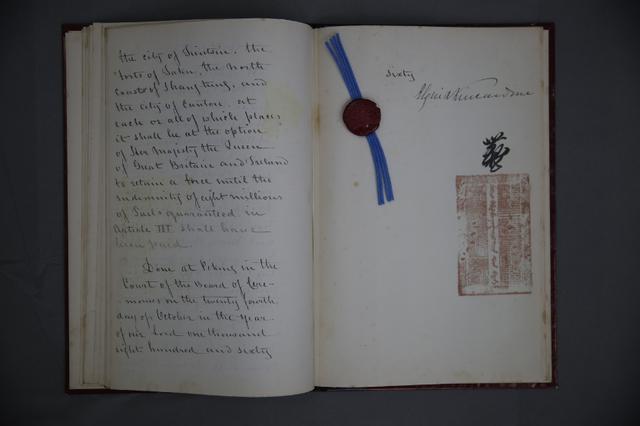 the city of Tientsin, the
Forts of Taku, the north
Coast of Shang Tung, and
the City of Canton, at
each or all of which places
it shall be at the option
of Her Majesty the Queen
of Great Britain and Ireland
to retain a force until the
indemnity of eight millions
of Taels guaranteed in
Article III shall have
been paid.
Done at Peking in the
Court of the Board of Cere-
monies on the twenty fourth
day of October in the Year
of our Lord one thousand
eight hundred and sixty
Sixty
Elgin & Kincardine